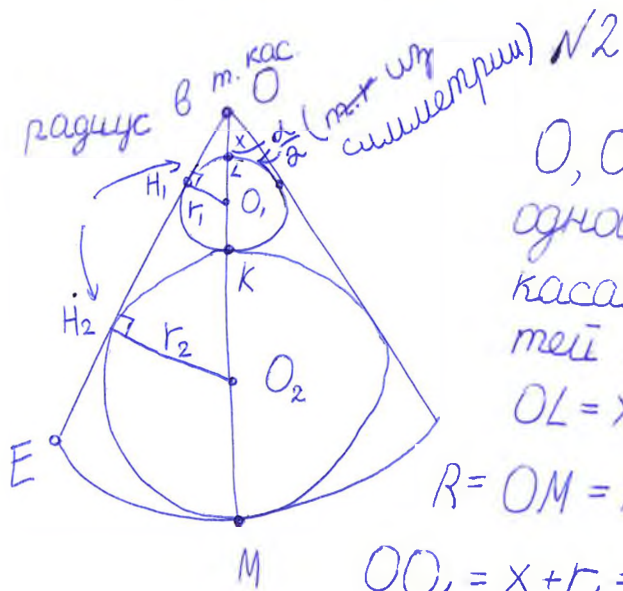 радиус в т. кас.
(из симметрии)
№2
O
x
α/2
L
H₁
r₁
O₁
K
H₂
r₂
O₂
E
M
O, O
одно
каса
тей
OL = x
R = OM =
OO₁ = x + r₁ =